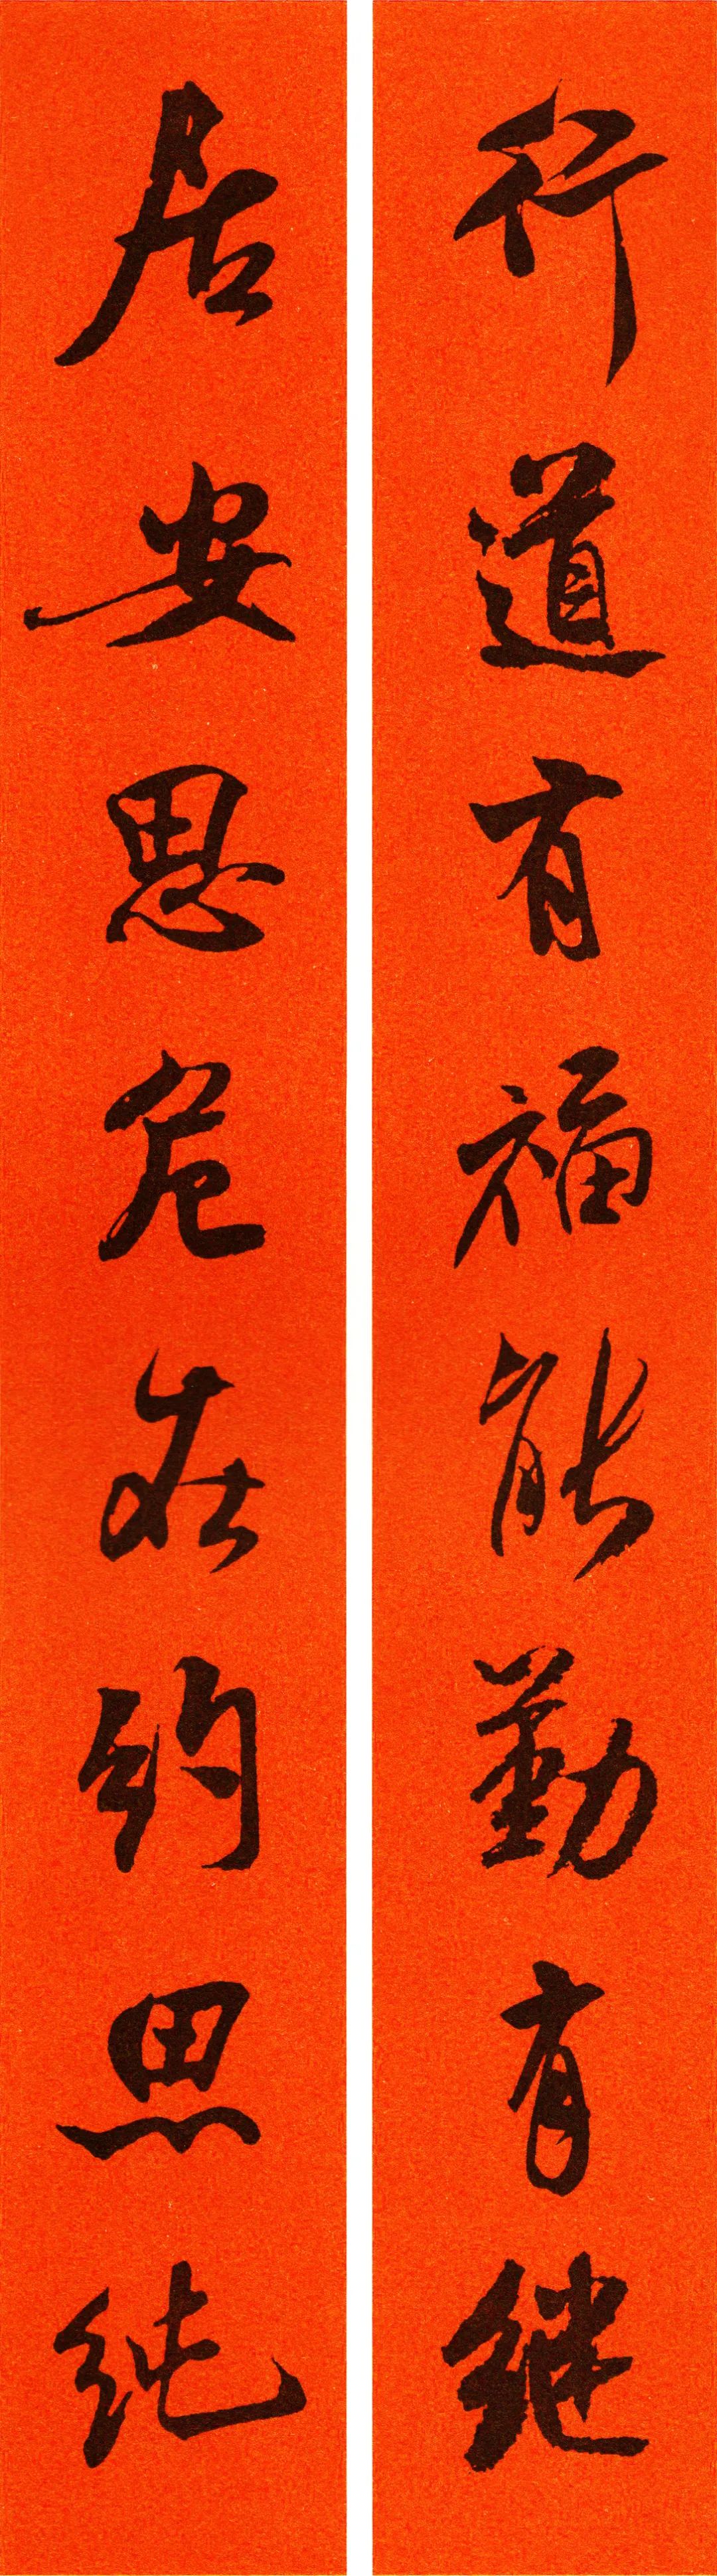 行道有福能勤有继
居安思危在约思纯